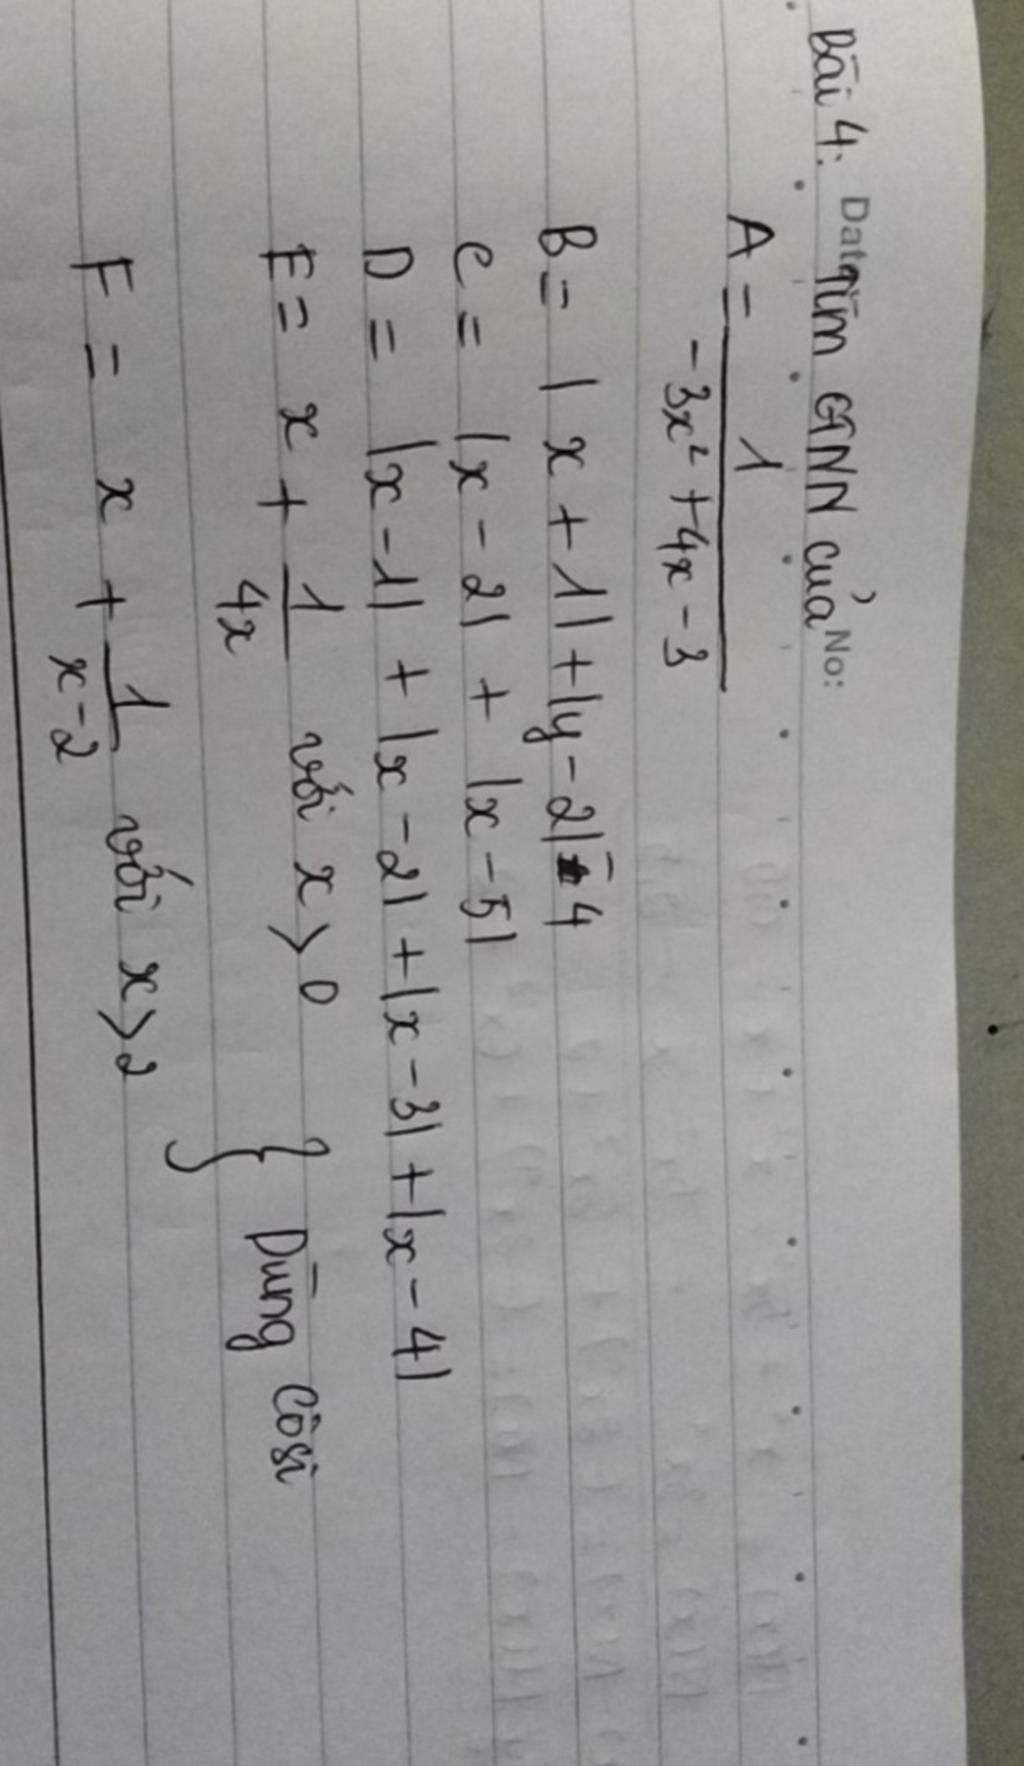 Bài 4: Tìm GTNN của
A = 1 / (-3x² + 4x - 3)
B = |x + 1| + |y - 2| - 4
C = |x - 2| + |x - 5|
D = |x - 1| + |x - 2| + |x - 3| + |x - 4|
E = x + 1/4x với x > 0
F = x + 1/x-2 với x > 2
} Dùng Côsi
Date
No: